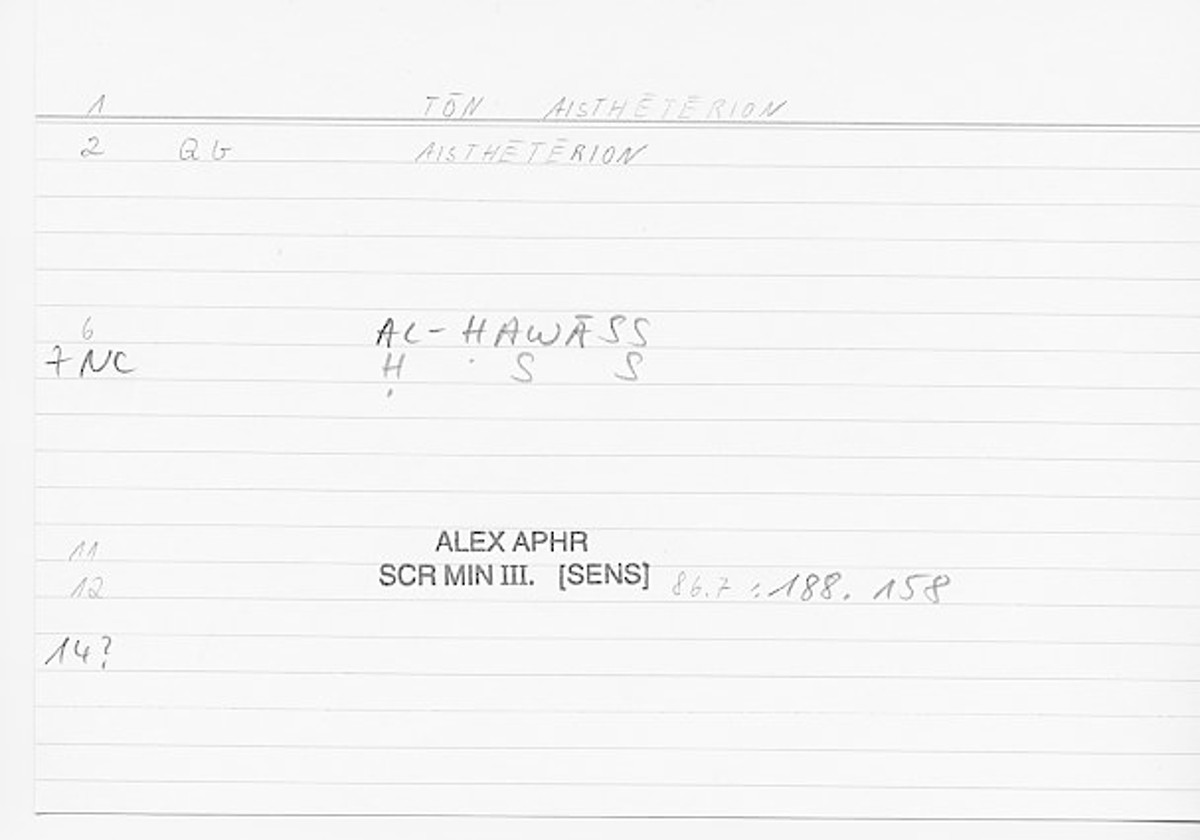 1 TŌN AISTHĒTĒRION
2 QG AISTHĒTĒRION
6 AL-HAWĀSS
7 NC Ḥ S S
11 ALEX APHR
12 SCR MIN III. [SENS] 86.7 : 188. 158
14?